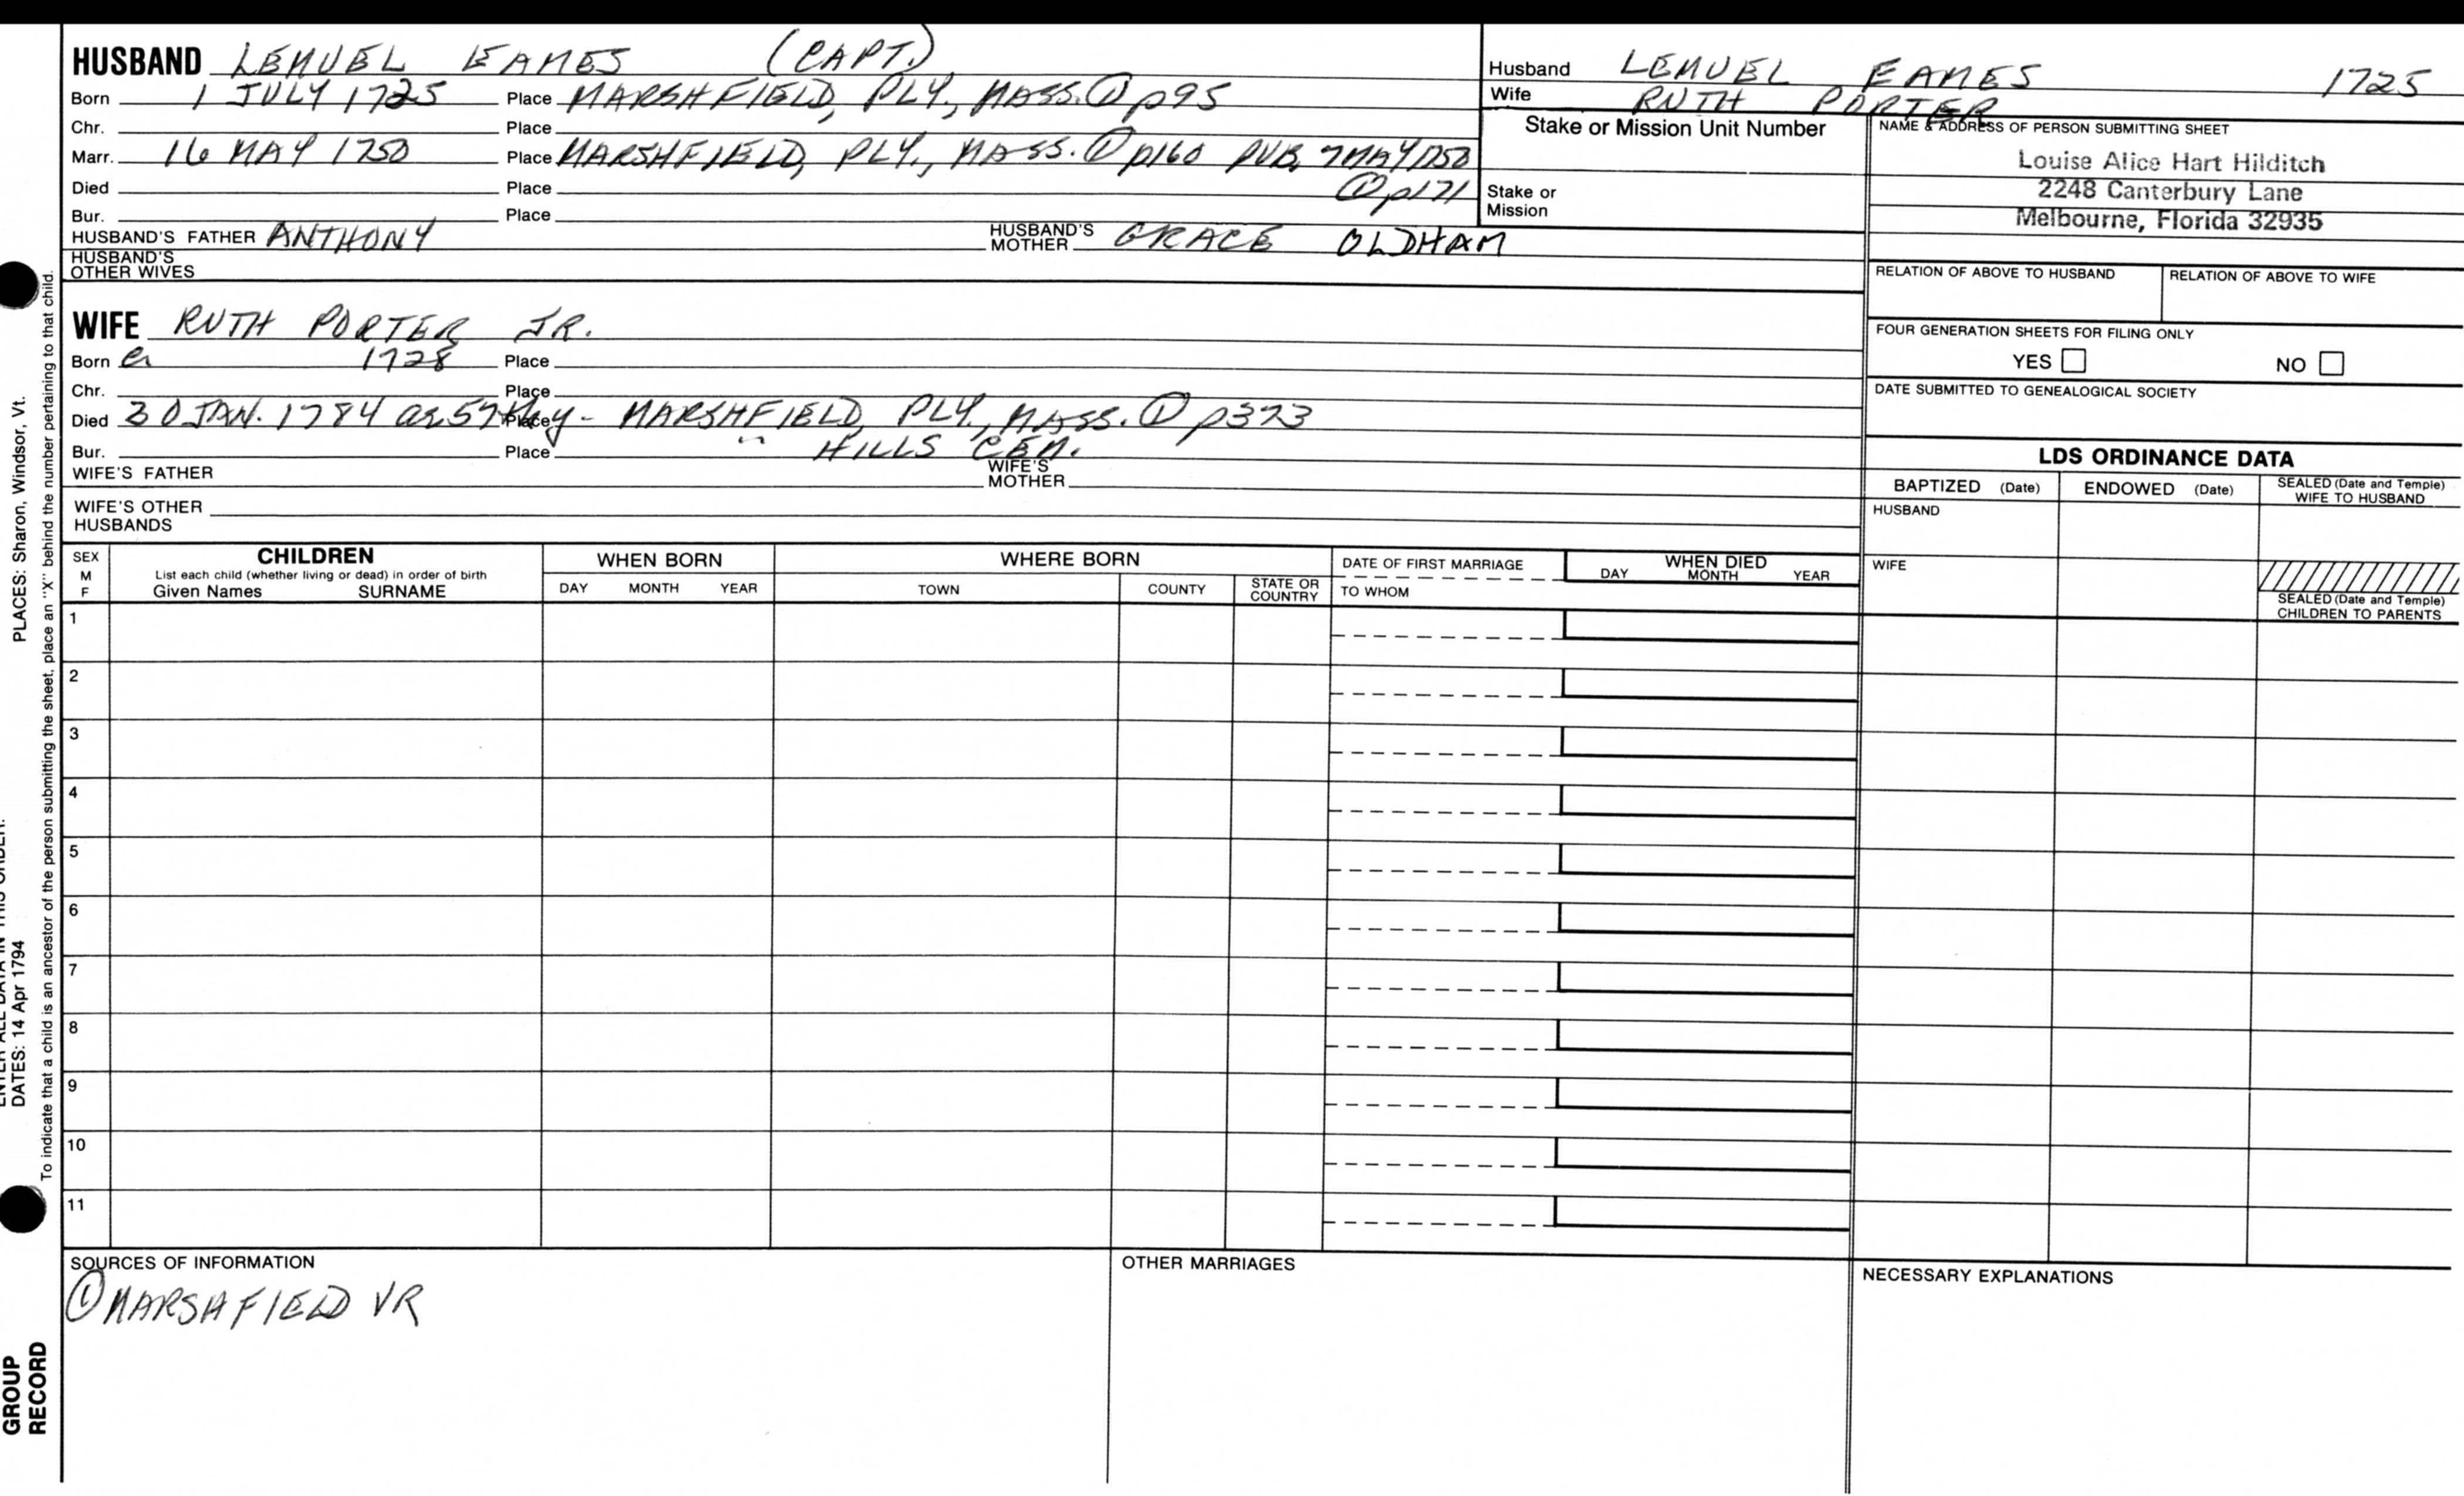 HUSBAND LEMUEL EAMES (CAPT.)
Born 1 JULY 1725 Place MARSHFIELD, PLY., MASS. ① p95
Chr. Place
Marr. 16 MAY 1750 Place MARSHFIELD, PLY., MASS. ① p160 PUB. 7 MAY 1750
Died Place ① p171
Bur. Place
HUSBAND'S FATHER ANTHONY HUSBAND'S MOTHER GRACE OLDHAM
HUSBAND'S OTHER WIVES
Husband LEMUEL EAMES 1725
Wife RUTH PORTER
Stake or Mission Unit Number
Stake or Mission
NAME & ADDRESS OF PERSON SUBMITTING SHEET
Louise Alice Hart Hilditch
2248 Canterbury Lane
Melbourne, Florida 32935
RELATION OF ABOVE TO HUSBAND RELATION OF ABOVE TO WIFE
FOUR GENERATION SHEETS FOR FILING ONLY
YES NO
DATE SUBMITTED TO GENEALOGICAL SOCIETY
WIFE RUTH PORTER JR.
Born 1728 Place
Chr. Place
Died 30 JAN. 1784 ae 57th y - Place MARSHFIELD, PLY., MASS. ① p373
Bur. Place " HILLS CEM.
WIFE'S FATHER WIFE'S MOTHER
WIFE'S OTHER HUSBANDS
LDS ORDINANCE DATA
BAPTIZED (Date) ENDOWED (Date) SEALED (Date and Temple) WIFE TO HUSBAND
HUSBAND
WIFE
SEALED (Date and Temple) CHILDREN TO PARENTS
SEX M F
CHILDREN
List each child (whether living or dead) in order of birth
Given Names SURNAME
WHEN BORN
DAY MONTH YEAR
WHERE BORN
TOWN COUNTY STATE OR COUNTRY
DATE OF FIRST MARRIAGE
TO WHOM
WHEN DIED
DAY MONTH YEAR
1
2
3
4
5
6
7
8
9
10
11
SOURCES OF INFORMATION
① MARSHFIELD VR
OTHER MARRIAGES
NECESSARY EXPLANATIONS
PLACES: Sharon, Windsor, Vt.
DATES: 14 Apr 1794
To indicate that a child is an ancestor of the person submitting the sheet, place an "X" behind the number pertaining to that child.
GROUP
RECORD